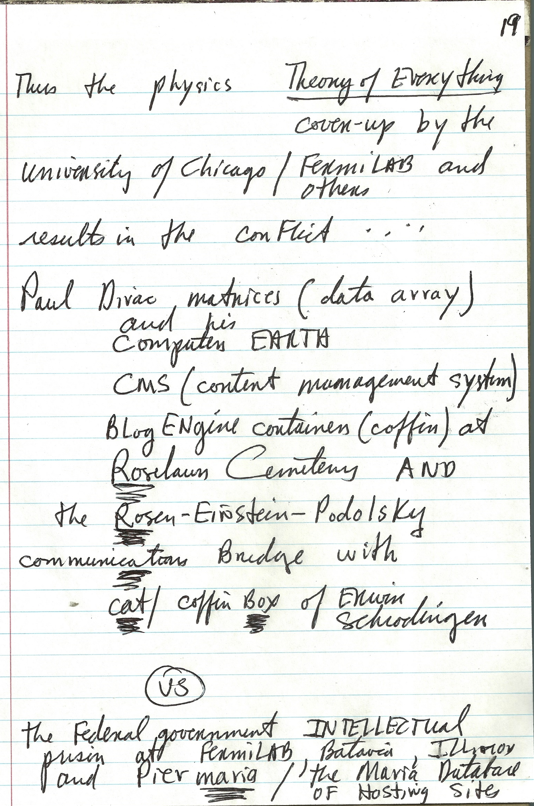 19
Thus the physics Theory of Everything
cover-up by the
University of Chicago / FermiLAB and
others
results in the conflict .....
Paul Dirac matrices (data array)
and his
Computer EARTH
CMS (content management system)
Blog ENgine container (coffin) at
Roselawn Cemetery AND
the Rosen-Einstein-Podolsky
communications Bridge with
cat/ coffin Box of Erwin
Schrodinger
VS
the Federal government INTELLECTUAL
prison at FermiLAB Batavia, Illinois
and Pier maria / the Maria Database
OF Hosting Sites